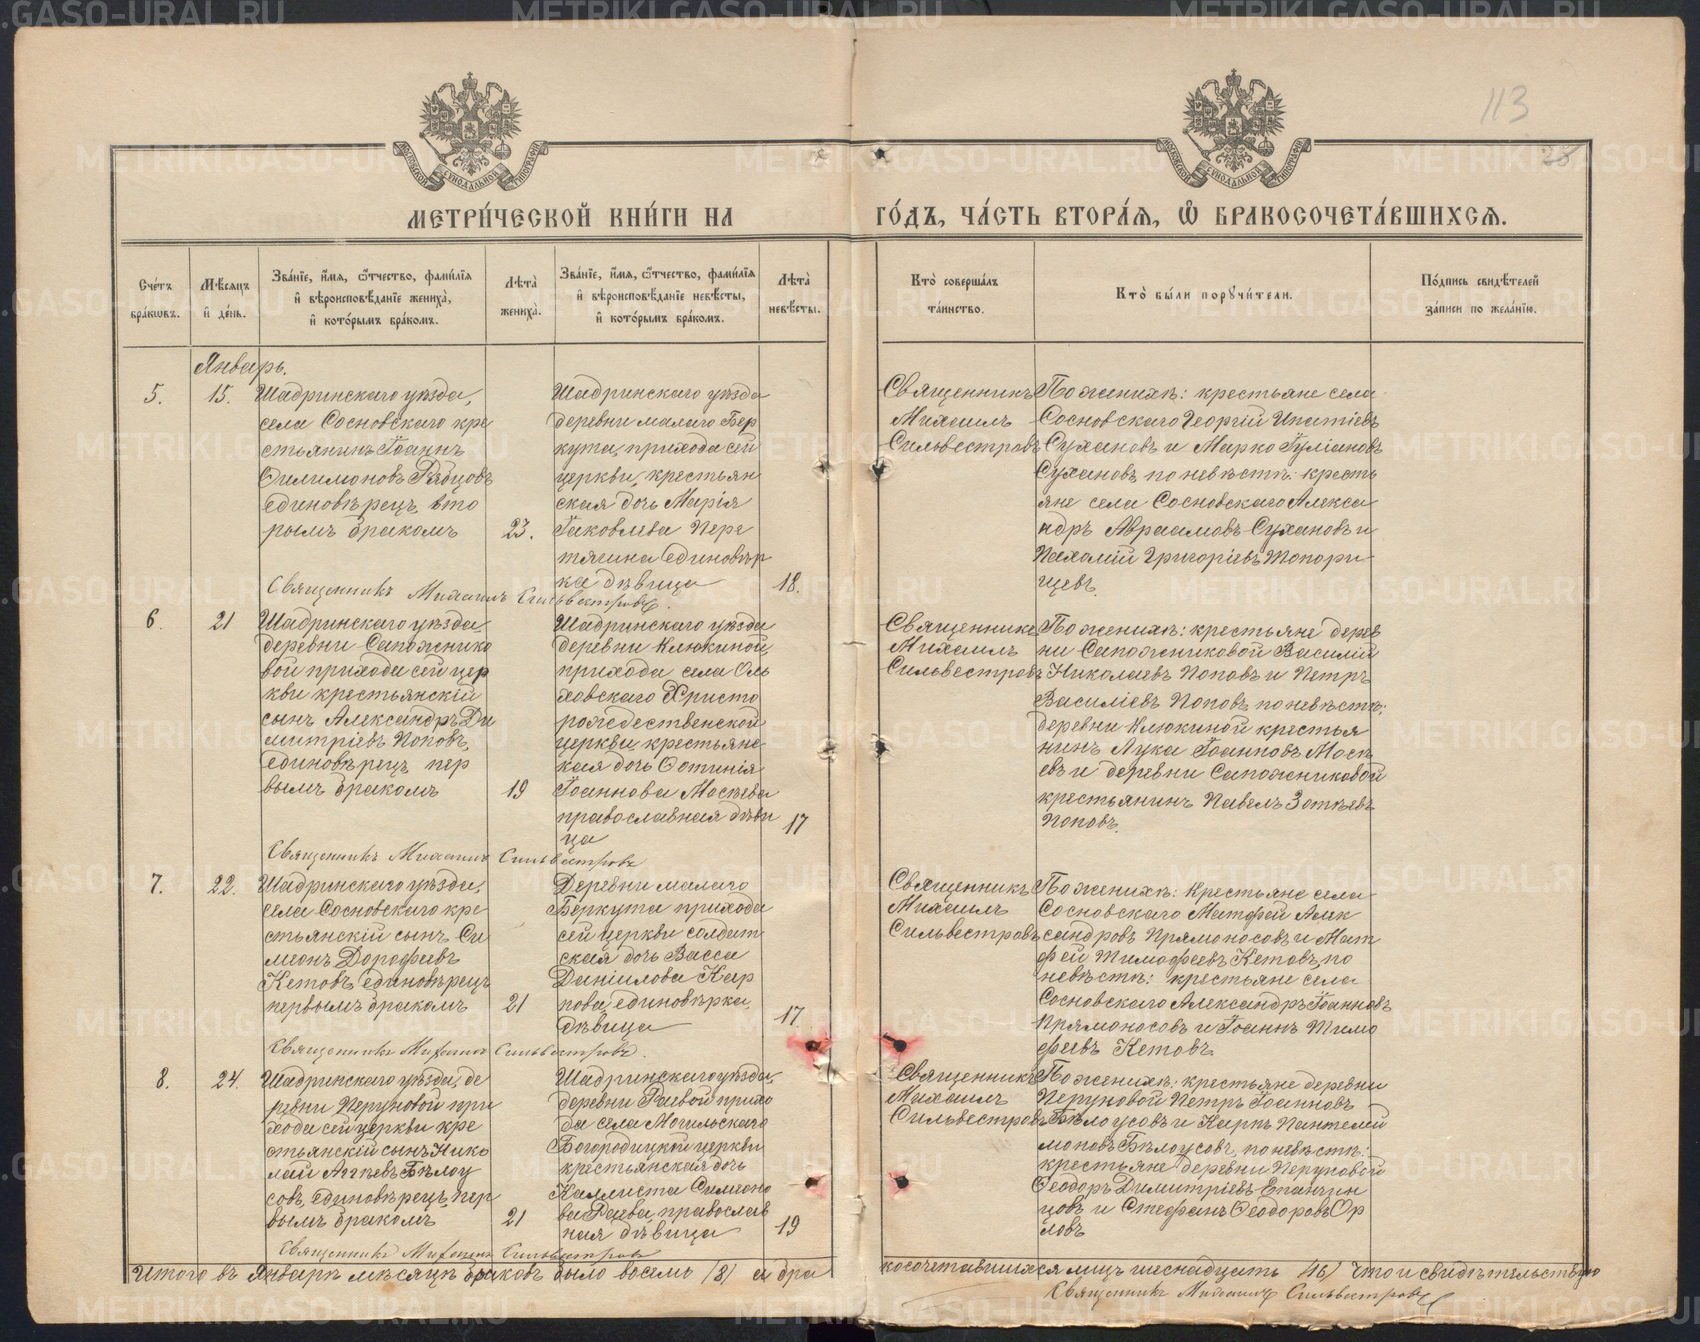 113
25
МОСКОВСКОЙ СѴНОДАЛЬНОЙ ТИПОГРАФІИ
МОСКОВСКОЙ СѴНОДАЛЬНОЙ ТИПОГРАФІИ
МЕТРИ́ЧЕСКОЙ КНИ́ГИ НА ГО́ДЪ, ЧА́СТЬ ВТОРА́Ѧ, Ѽ БРАКОСОЧЕТА́ВШИХСѦ.
Сче́тъ бра́кѡвъ.
Мѣ́сѧцъ и҆ де́нь.
Зва́нїе, и҆́мѧ, ѻ҆́тчество, фами́лїѧ и҆ вѣроисповѣ́данїе жениха̀, и҆ кото́рымъ бра́комъ.
Лѣ́та̀ жениха̀.
Зва́нїе, и҆́мѧ, ѻ҆́тчество, фами́лїѧ и҆ вѣроисповѣ́данїе невѣ́сты, и҆ кото́рымъ бра́комъ.
Лѣ́та̀ невѣ́сты.
Кто̀ соверша́лъ та́инство.
Кто̀ бы́ли порꙋчи́тели.
По́дпись свидѣ́телей за́писи по жела́нїю.
Январь.
5.
15.
Шадринскаго уѣзда,
села Сосновскаго кре
стьянинъ Іоаннъ
Филимоновъ Рябцовъ
единовѣрецъ вто
рымъ бракомъ
23.
Шадринскаго уѣзда
деревни малаго Бер
кута, прихода сей
церкви, крестьян
ская дочь Марія
Іаковлева Пере
тягина единовѣр
ка дѣвица
18.
Священникъ
Михаилъ
Сильвестровъ
По женихѣ: крестьяне села
Сосновскаго Георгій Ипатіевъ
Сухановъ и Марко
Сухановъ по невѣстѣ: кресть
яне села Сосновскаго Алекса
ндръ Авраамовъ Сухановъ и
Пахомій Григоріевъ Топори
щевъ.
Священникъ Михаилъ Сильвестровъ.
6.
21
Шадринскаго уѣзда
деревни Сапожнико
вой прихода сей цер
кви крестьянскій
сынъ Александръ Ди
митріевъ Поповъ,
единовѣрецъ пер
вымъ бракомъ
19
Шадринскаго уѣзда
деревни Клюкиной
прихода села Оль
ховскаго Христо
рождественской
церкви, крестьянс
кая дочь Фотинія
Іоаннова Мосѣева
православная дѣви
ца
17
Священникъ
Михаилъ
Сильвестровъ
По женихѣ: крестьяне дерев
ни Сапожниковой Василій
Николаевъ Поповъ и Петръ
Василіевъ Поповъ по невѣстѣ:
деревни Клюкиной крестья
нинъ Лука Іоанновъ Мосѣ
евъ и деревни Сапожниковой
крестьянинъ Павелъ Зотѣевъ
Поповъ.
Священникъ Михаилъ Сильвестровъ
7.
22.
Шадринскаго уѣзда,
села Сосновскаго кре
стьянскій сынъ Си
меонъ Дорофеевъ
Кетовъ, единовѣрецъ
первымъ бракомъ
21
Деревни малаго
Беркута прихода
сей церкви солдат
ская дочь Васса
Даніилова Кар
пова, единовѣрка,
дѣвица
17.
Священникъ
Михаилъ
Сильвестровъ
По женихѣ: крестьяне села
Сосновскаго Матфей Алек
сандровъ Прямоносовъ и Мат
фей Тимофеевъ Кетовъ, по
невѣстѣ: крестьяне села
Сосновскаго Александръ Іоанновъ
Прямоносовъ и Іоаннъ Тимо
феевъ Кетовъ.
Священникъ Михаилъ Сильвестровъ.
8.
24.
Шадринскаго уѣзда, де
ревни Перуновой при
хода сей церкви кре
стьянскій сынъ Нико
лай Аггеевъ Бѣлоу
совъ, единовѣрецъ, пер
вымъ бракомъ
21
Шадринскаго уѣзда,
деревни Раевой прихо
да села Могильскаго
Богородицкой церкви
крестьянская дочь
Каллиста Симеоно
ва Раева, православ
ная дѣвица
19
Священникъ
Михаилъ
Сильвестровъ
По женихѣ: крестьяне деревни
Перуновой Петръ Іоанновъ
Бѣлоусовъ и Карпъ Пантелей
моновъ Бѣлоусовъ, по невѣстѣ:
крестьяне деревни Перуновой
Феодоръ Димитріевъ Епанчин
цовъ и Стефанъ Феодоровъ Ор
ловъ
Священникъ Михаилъ Сильвестровъ
Итого въ Январѣ мѣсяцѣ браковъ было восемь /8/ а бра
косочетавшихся лицъ шеснадцать /16/ Что и свидѣтельствую
Священникъ Михаилъ Сильвестровъ
METRIKI.GASO-URAL.RU